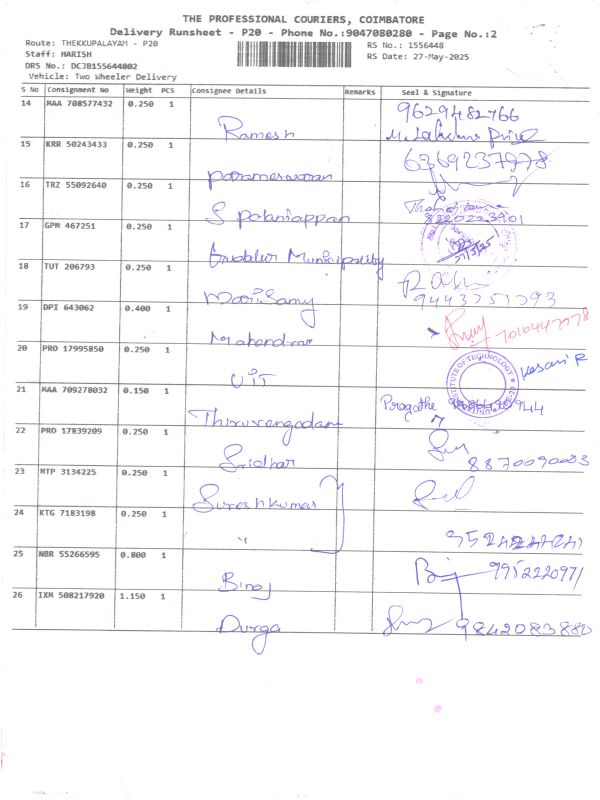 THE PROFESSIONAL COURIERS, COIMBATORE
Delivery Runsheet - P20 - Phone No.:9047080280 - Page No.:2
Route: THEKKUPALAYAM - P20 RS No.: 1556448
Staff: HARISH RS Date: 27-May-2025
DRS No.: DCJB155644802
Vehicle: Two Wheeler Delivery
S No Consignment No Weight PCS Consignee Details Remarks Seal & Signature
14 MAA 708577432 0.250 1 Ramesh 9629482766
15 KRR 50243433 0.250 1 Parameswaran 6369237978
16 TRZ 55092640 0.250 1 S Palaniappan
17 GPM 467251 0.250 1 Gudalur Municipality 27/5/25
18 TUT 206793 0.250 1 Marisamy 9443751393
19 DPI 643062 0.400 1 Mahendran
20 PRO 17995850 0.250 1 UIT INSTITUTE OF TECHNOLOGY Kesani R
21 MAA 709278032 0.150 1 Thiruvengadam Pragathe
22 PRO 17839209 0.250 1 Sridhar 8870090033
23 MTP 3134225 0.250 1 Sureshkumar
24 KTG 7183198 0.250 1 "
25 NBR 55266595 0.800 1 Binoj 9952220971
26 IXM 508217920 1.150 1 Durga 9842083880